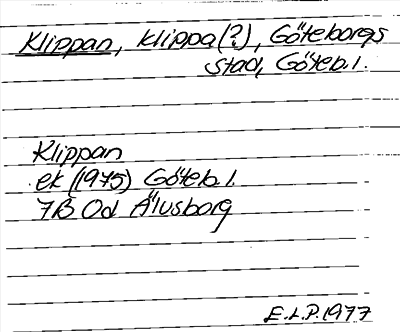 Klippan, klippa(?), Göteborgs
stad, Göteb. l.
Klippan
ek (1975) Göteb. l.
7B Od Älvsborg
E.L.P. 1977